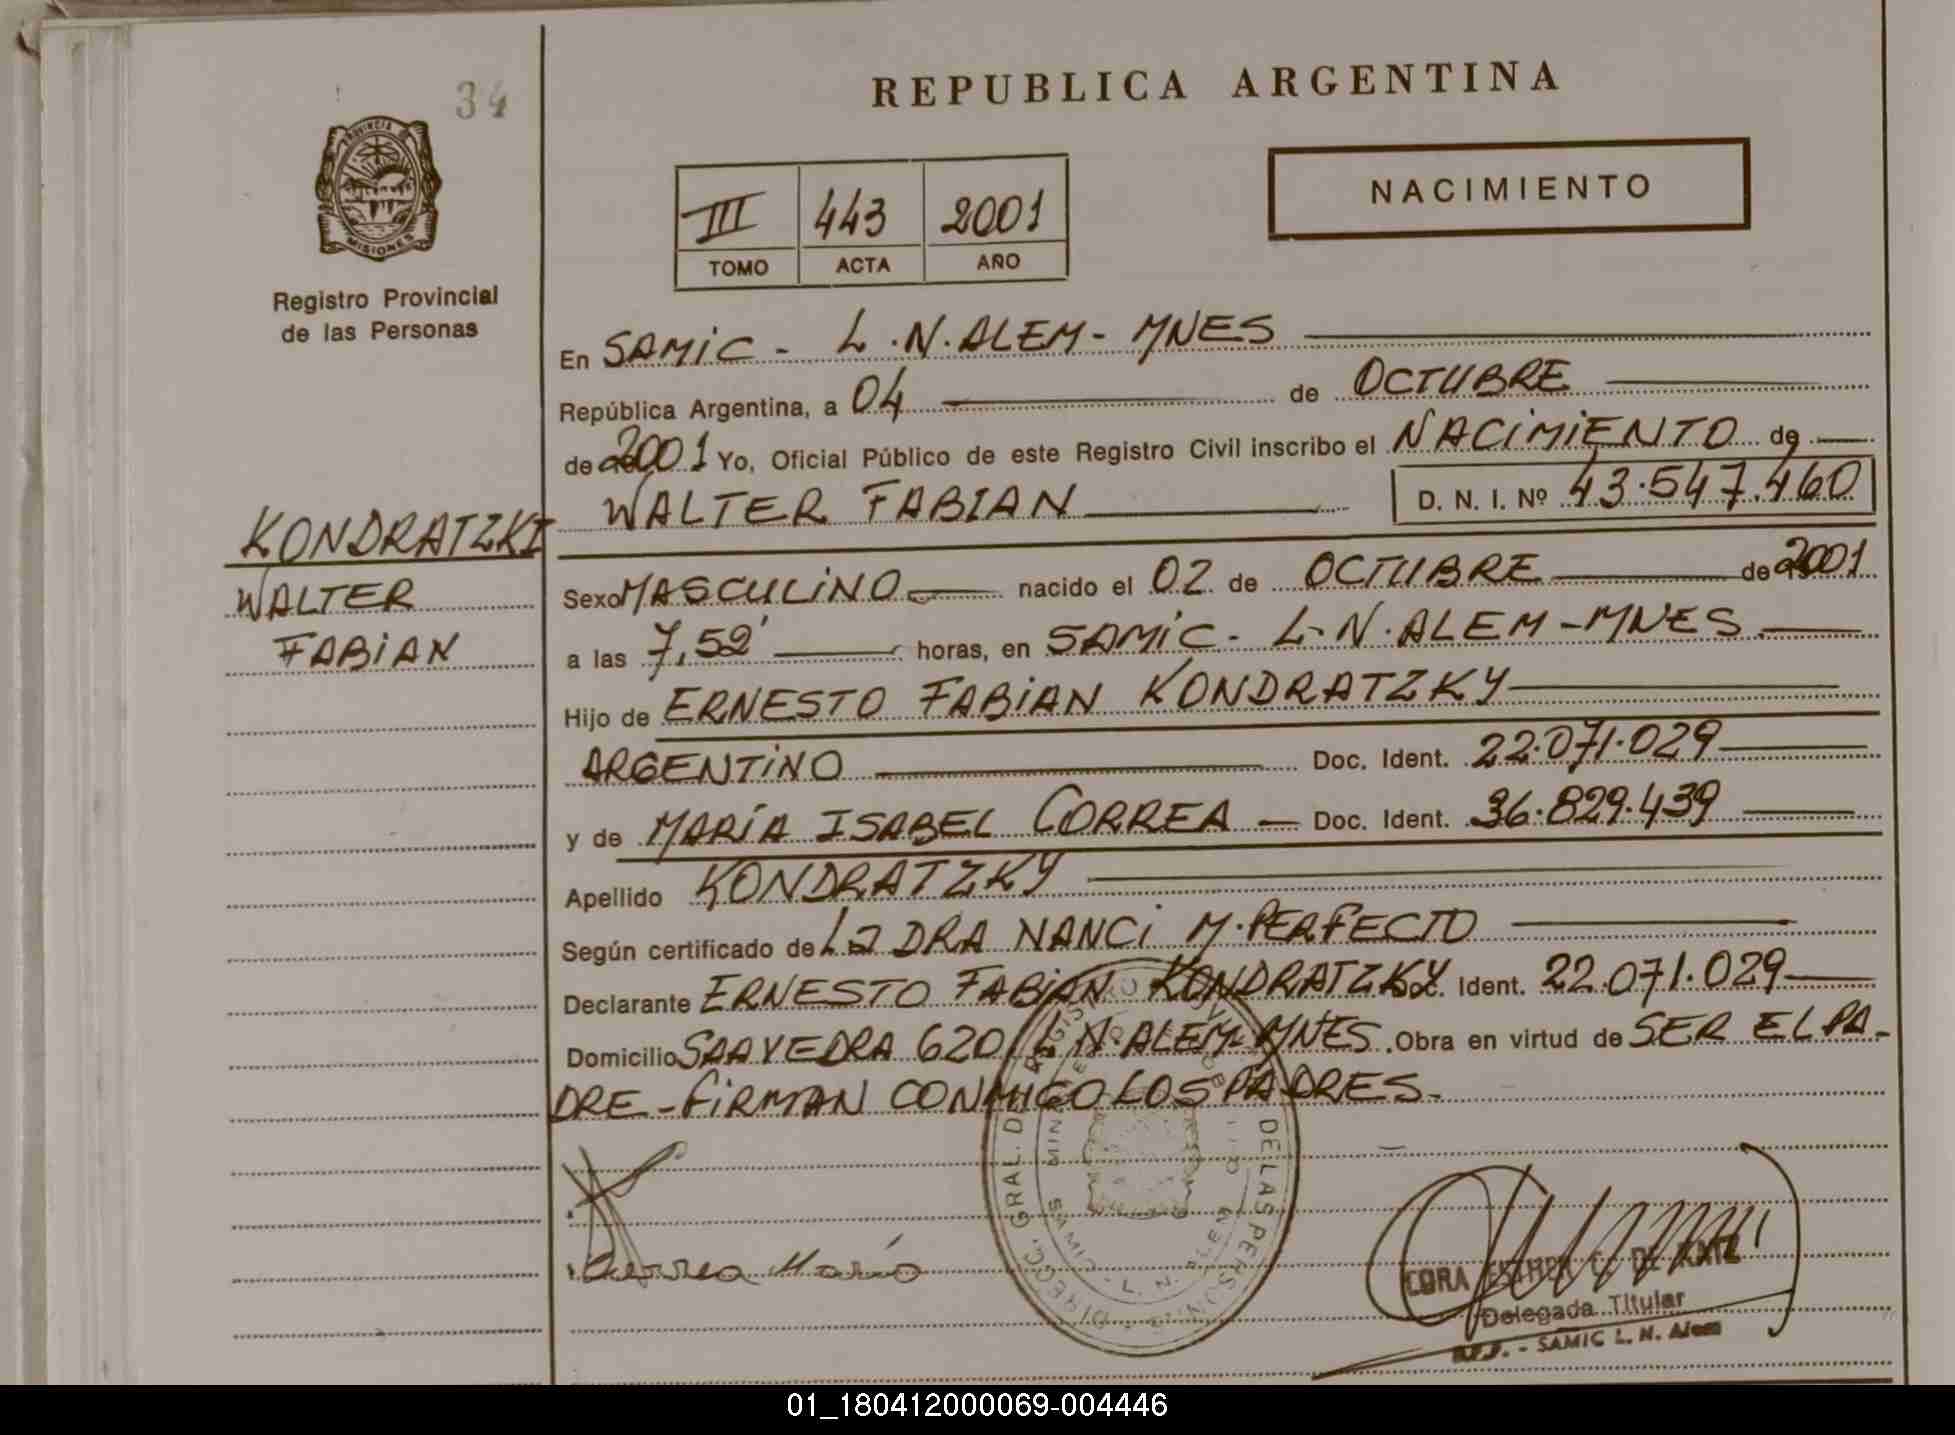 34
REPUBLICA ARGENTINA
PROVINCIA DE
MISIONES
Registro Provincial
de las Personas
III 443 2001
TOMO ACTA AÑO
NACIMIENTO
En SAMIC - L.N.ALEM- MNES
República Argentina, a 04 de OCTUBRE
de 2001 Yo, Oficial Público de este Registro Civil inscribo el NACIMIENTO de
WALTER FABIAN D. N. I. Nº 43.547.460
KONDRATZKI
WALTER
FABIAN
Sexo MASCULINO nacido el 02 de OCTUBRE de 2001
a las 7,52' horas, en SAMIC- L.N.ALEM-MNES
Hijo de ERNESTO FABIAN KONDRATZKY
ARGENTINO Doc. Ident. 22.071.029
y de MARÍA ISABEL CORREA - Doc. Ident. 36.829.439
Apellido KONDRATZKY
Según certificado de La DRA NANCI M.PERFECTO
Declarante ERNESTO FABIAN KONDRATZKY Doc. Ident. 22.071.029
Domicilio SAAVEDRA 620 L.N.ALEM-MNES. Obra en virtud de SER EL PA-
DRE - FIRMAN CONMIGO LOS PADRES.-
DIRECC. GRAL. DEL REGISTRO DE LAS PERSONAS
SAMIC - L. N. ALEM
Correa María
CORA ESTHER C. DE KATZ
Delegada Titular
R.P.P. - SAMIC L. N. Alem
01_180412000069-004446